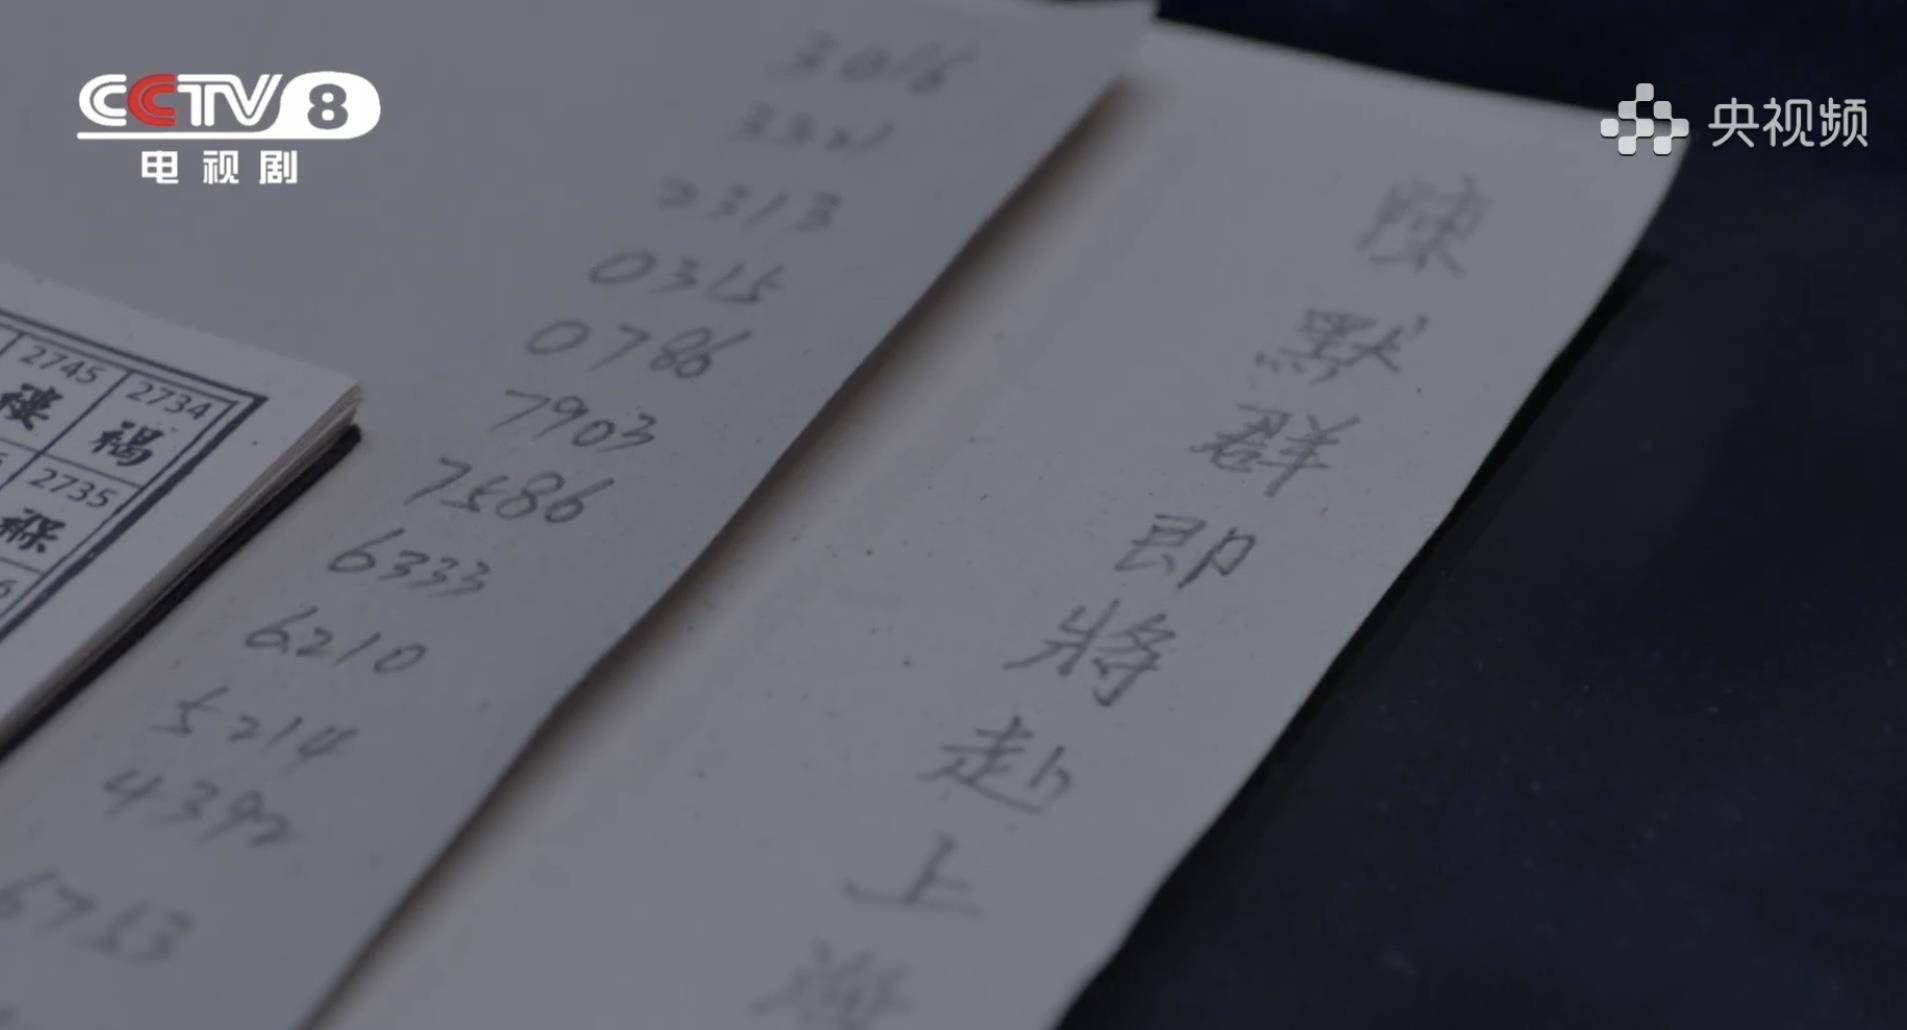 CCTV 8
电视剧
央视频
3016
2313
0315
0786
7903
7586
6333
6210
5214
4392
6753
2745
2734
褸
褐
2735
褓
陳默群即將赴上海